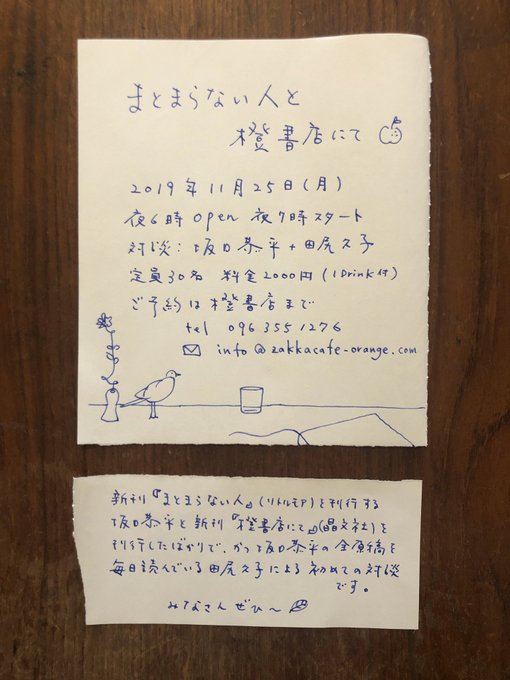 まとまらない人と
橙書店にて
2019年11月25日(月)
夜6時open 夜7時スタート
対談：坂口恭平+田尻久子
定員30名 料金2000円(1Drink付)
ご予約は橙書店まで
tel 096 355 1276
info@zakkacafe-orange.com
新刊『まとまらない人』(リトルモア)を刊行する
坂口恭平と新刊『橙書店にて』(晶文社)を
刊行したばかりで、かつ坂口恭平の全原稿を
毎日読んでいる田尻久子による初めての対談
です。
みなさんぜひ〜